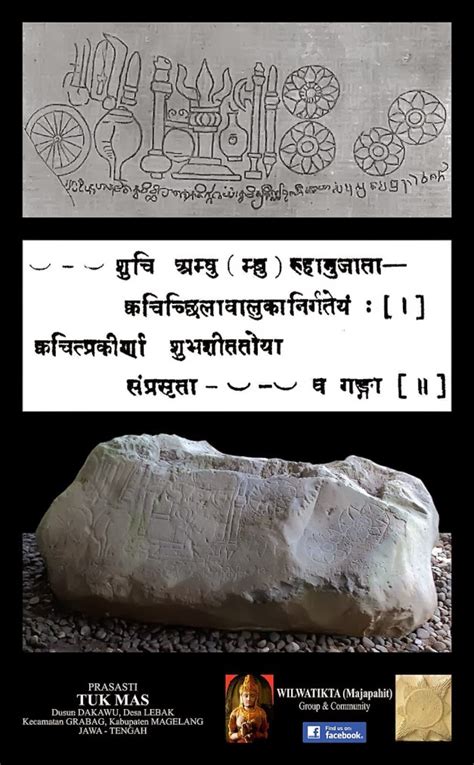 ⏑ – ⏑ शुचि अम्बु (म्बु) रुहानुजाता—
क्वचिच्छिलावालुकानिर्गतेयं : [।]
क्वचित्प्रकीर्णा शुभशीततोया
संप्रसृता – ⏑ – ⏑ व गङ्गा [॥]
PRASASTI
TUK MAS
Dusun DAKAWU, Desa LEBAK
Kecamatan GRABAG, Kabupaten MAGELANG
JAWA - TENGAH
WILWATIKTA (Majapahit)
Group & Community
Find us on
facebook.